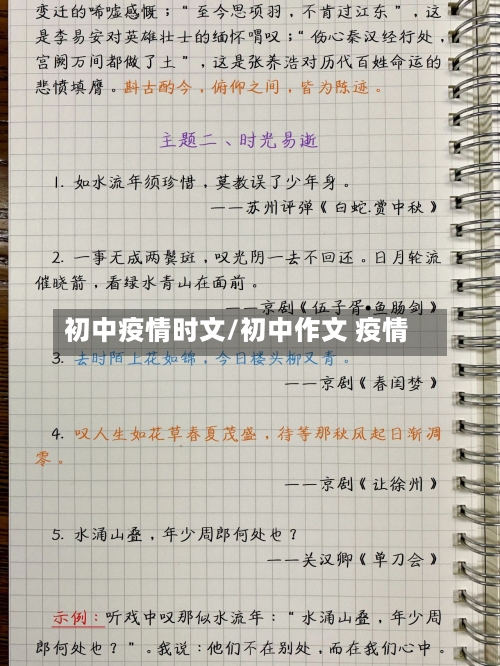 变迁的唏嘘感慨；“至今思项羽，不肯过江东”，这
是李易安对英雄壮士的缅怀喟叹；“伤心秦汉经行处，
宫阙万间都做了土”，这是张养浩对历代百姓命运的
悲愤填膺。斟古酌今，俯仰之间，皆为陈迹。
主题二、时光易逝
1. 如水流年须珍惜，莫教误了少年身。
——苏州评弹《白蛇.赏中秋》
2. 一事无成两鬓斑，叹光阴一去不回还。日月轮流
催晓箭，看绿水青山在面前。
——京剧《伍子胥•鱼肠剑》
初中疫情时文/初中作文 疫情
3. 去时陌上花如锦，今日楼头柳又青。
——京剧《春闺梦》
4. 叹人生如花草春夏茂盛，待等那秋风起日渐凋
零。
——京剧《让徐州》
5. 水涌山叠，年少周郎何处也？
——关汉卿《单刀会》
示例：听戏中叹那似水流年：“水涌山叠，年少周
郎何处也？”。我说：他们不在别处，而在我们心中。